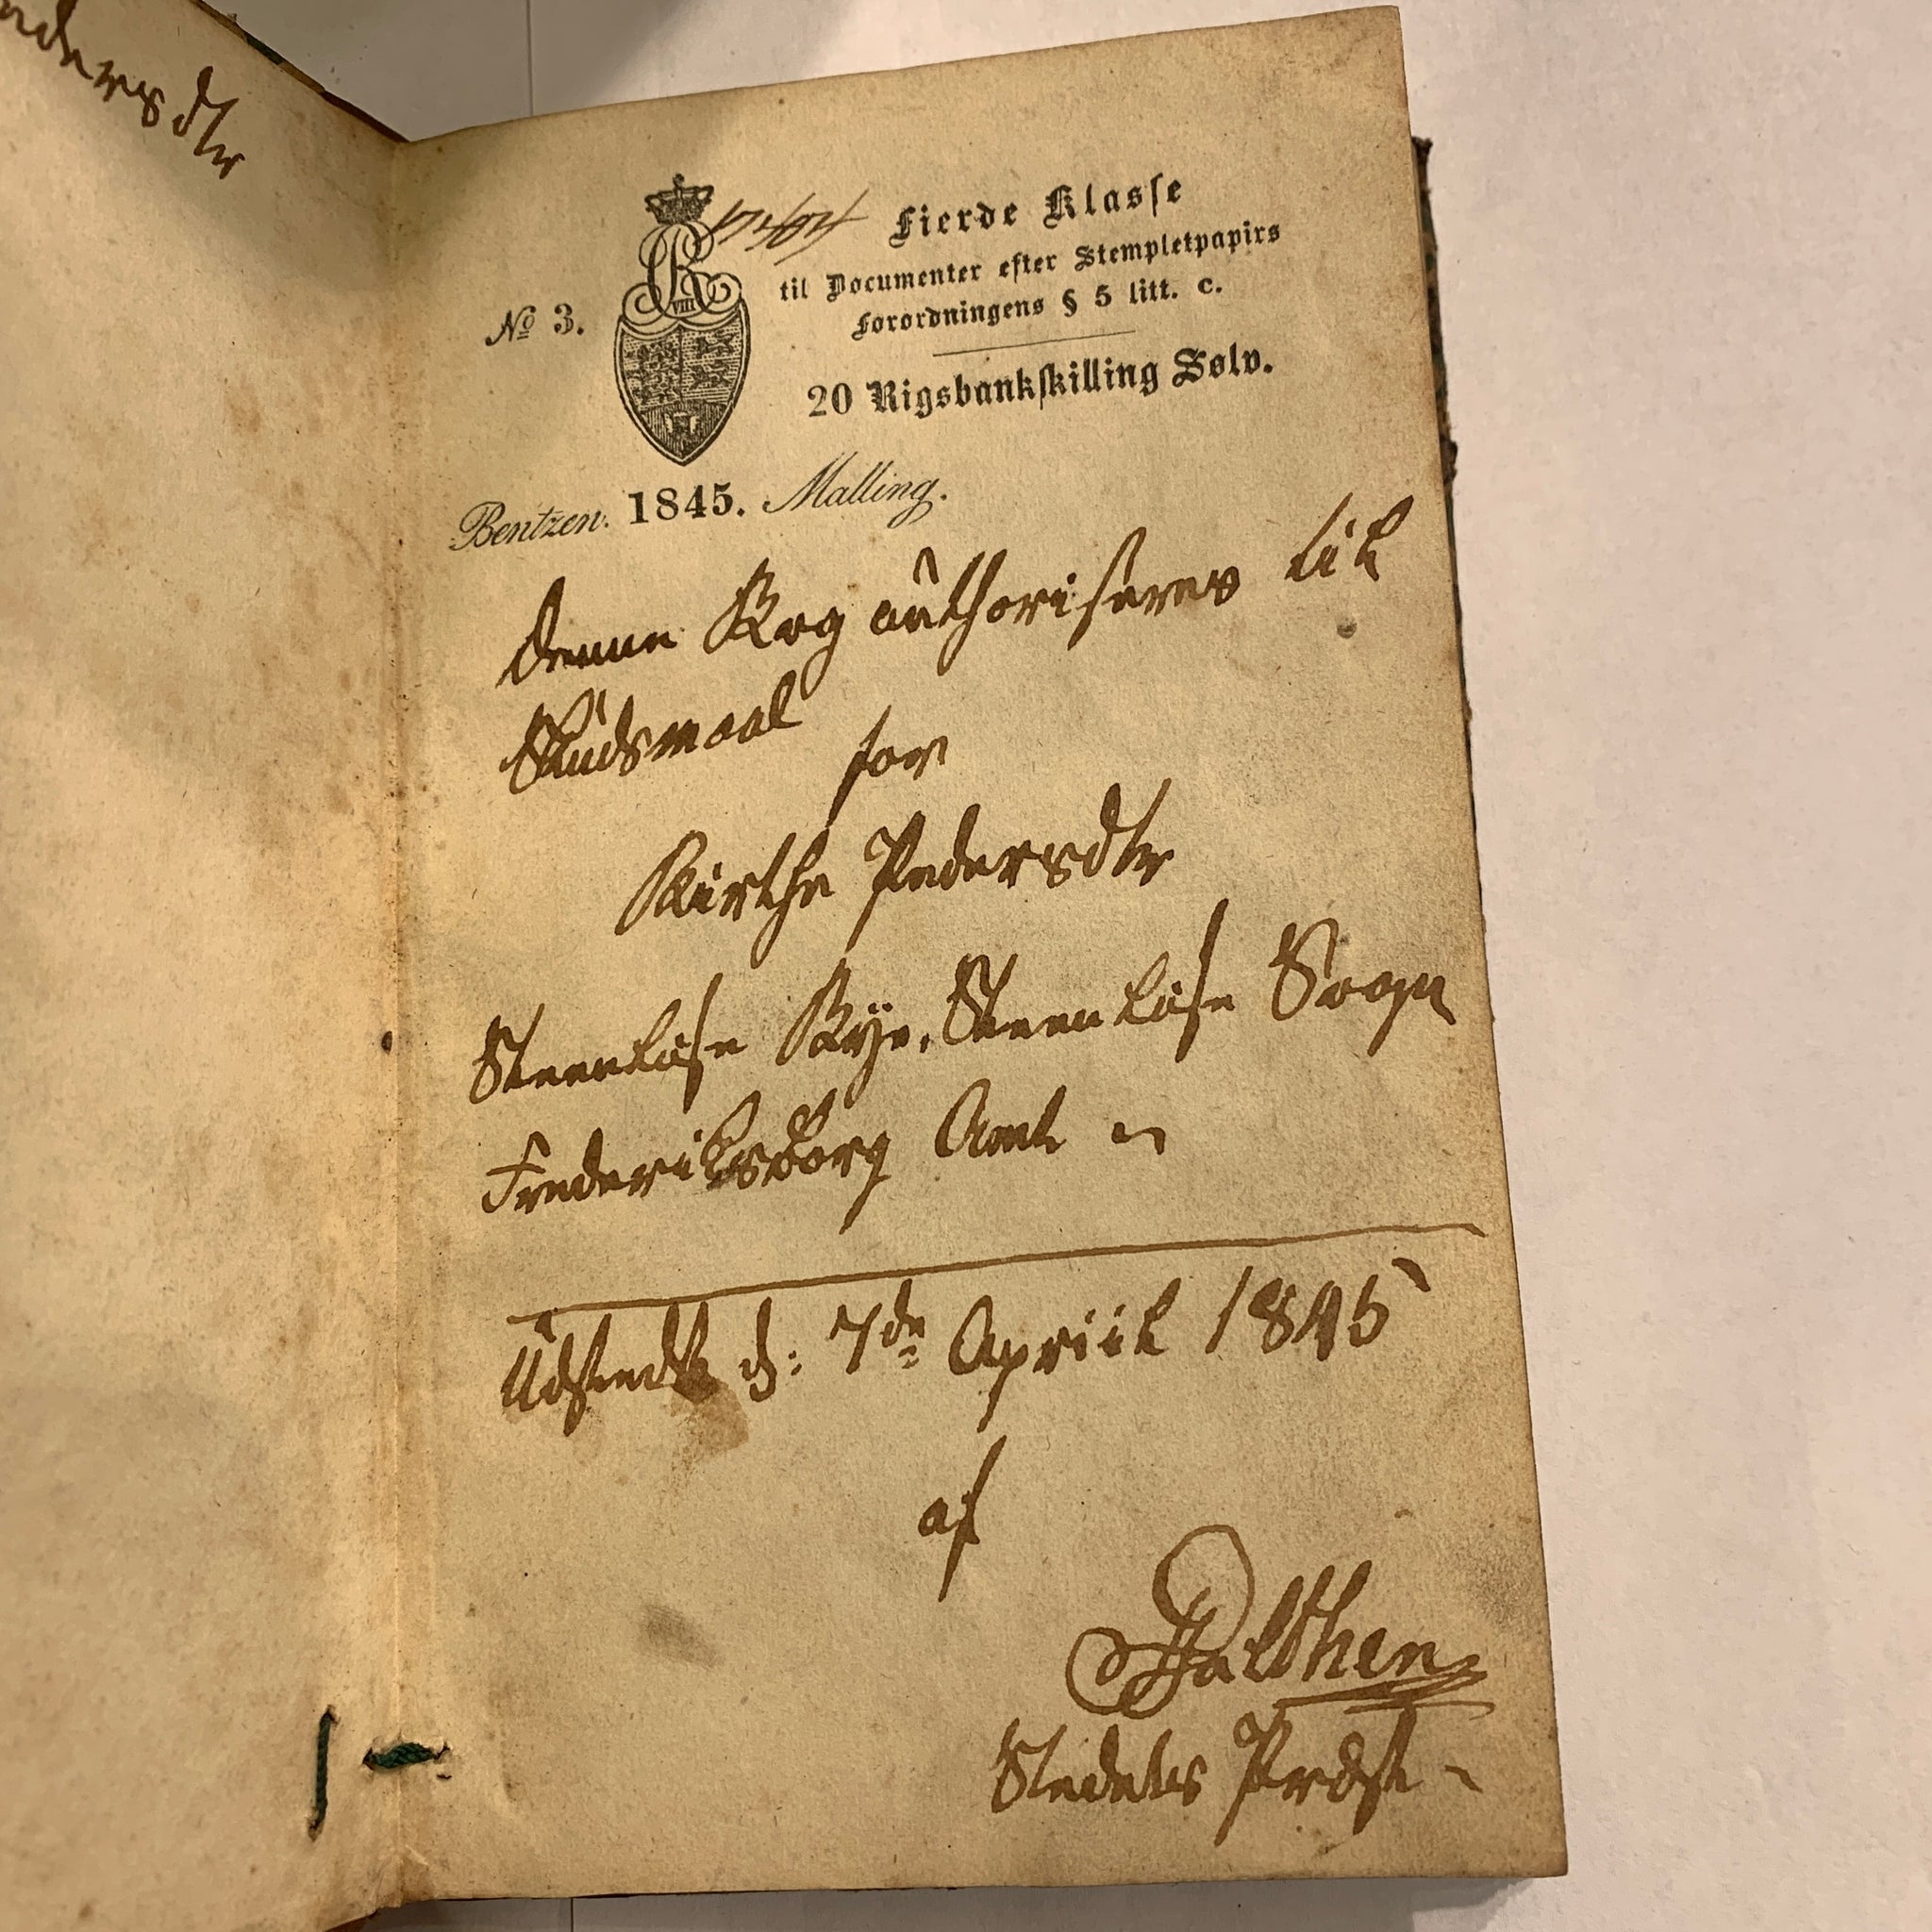 dersdtr
Fierde Klasse
til Documenter efter Stempletpapirs
Forordningens § 5 litt. c.
No 3.
VIII
20 Rigsbankskilling Sølv.
Bentzen. 1845. Malling.
Denne Bog authoriseres til
Skudsmaal
for
Kirthe Pedersdtr
Steenløse Bye, Steenløse Sogn
Frederiksborg Amt
Udstedt d: 7de Apriil 1845
af
Balthen
Stedets Præst